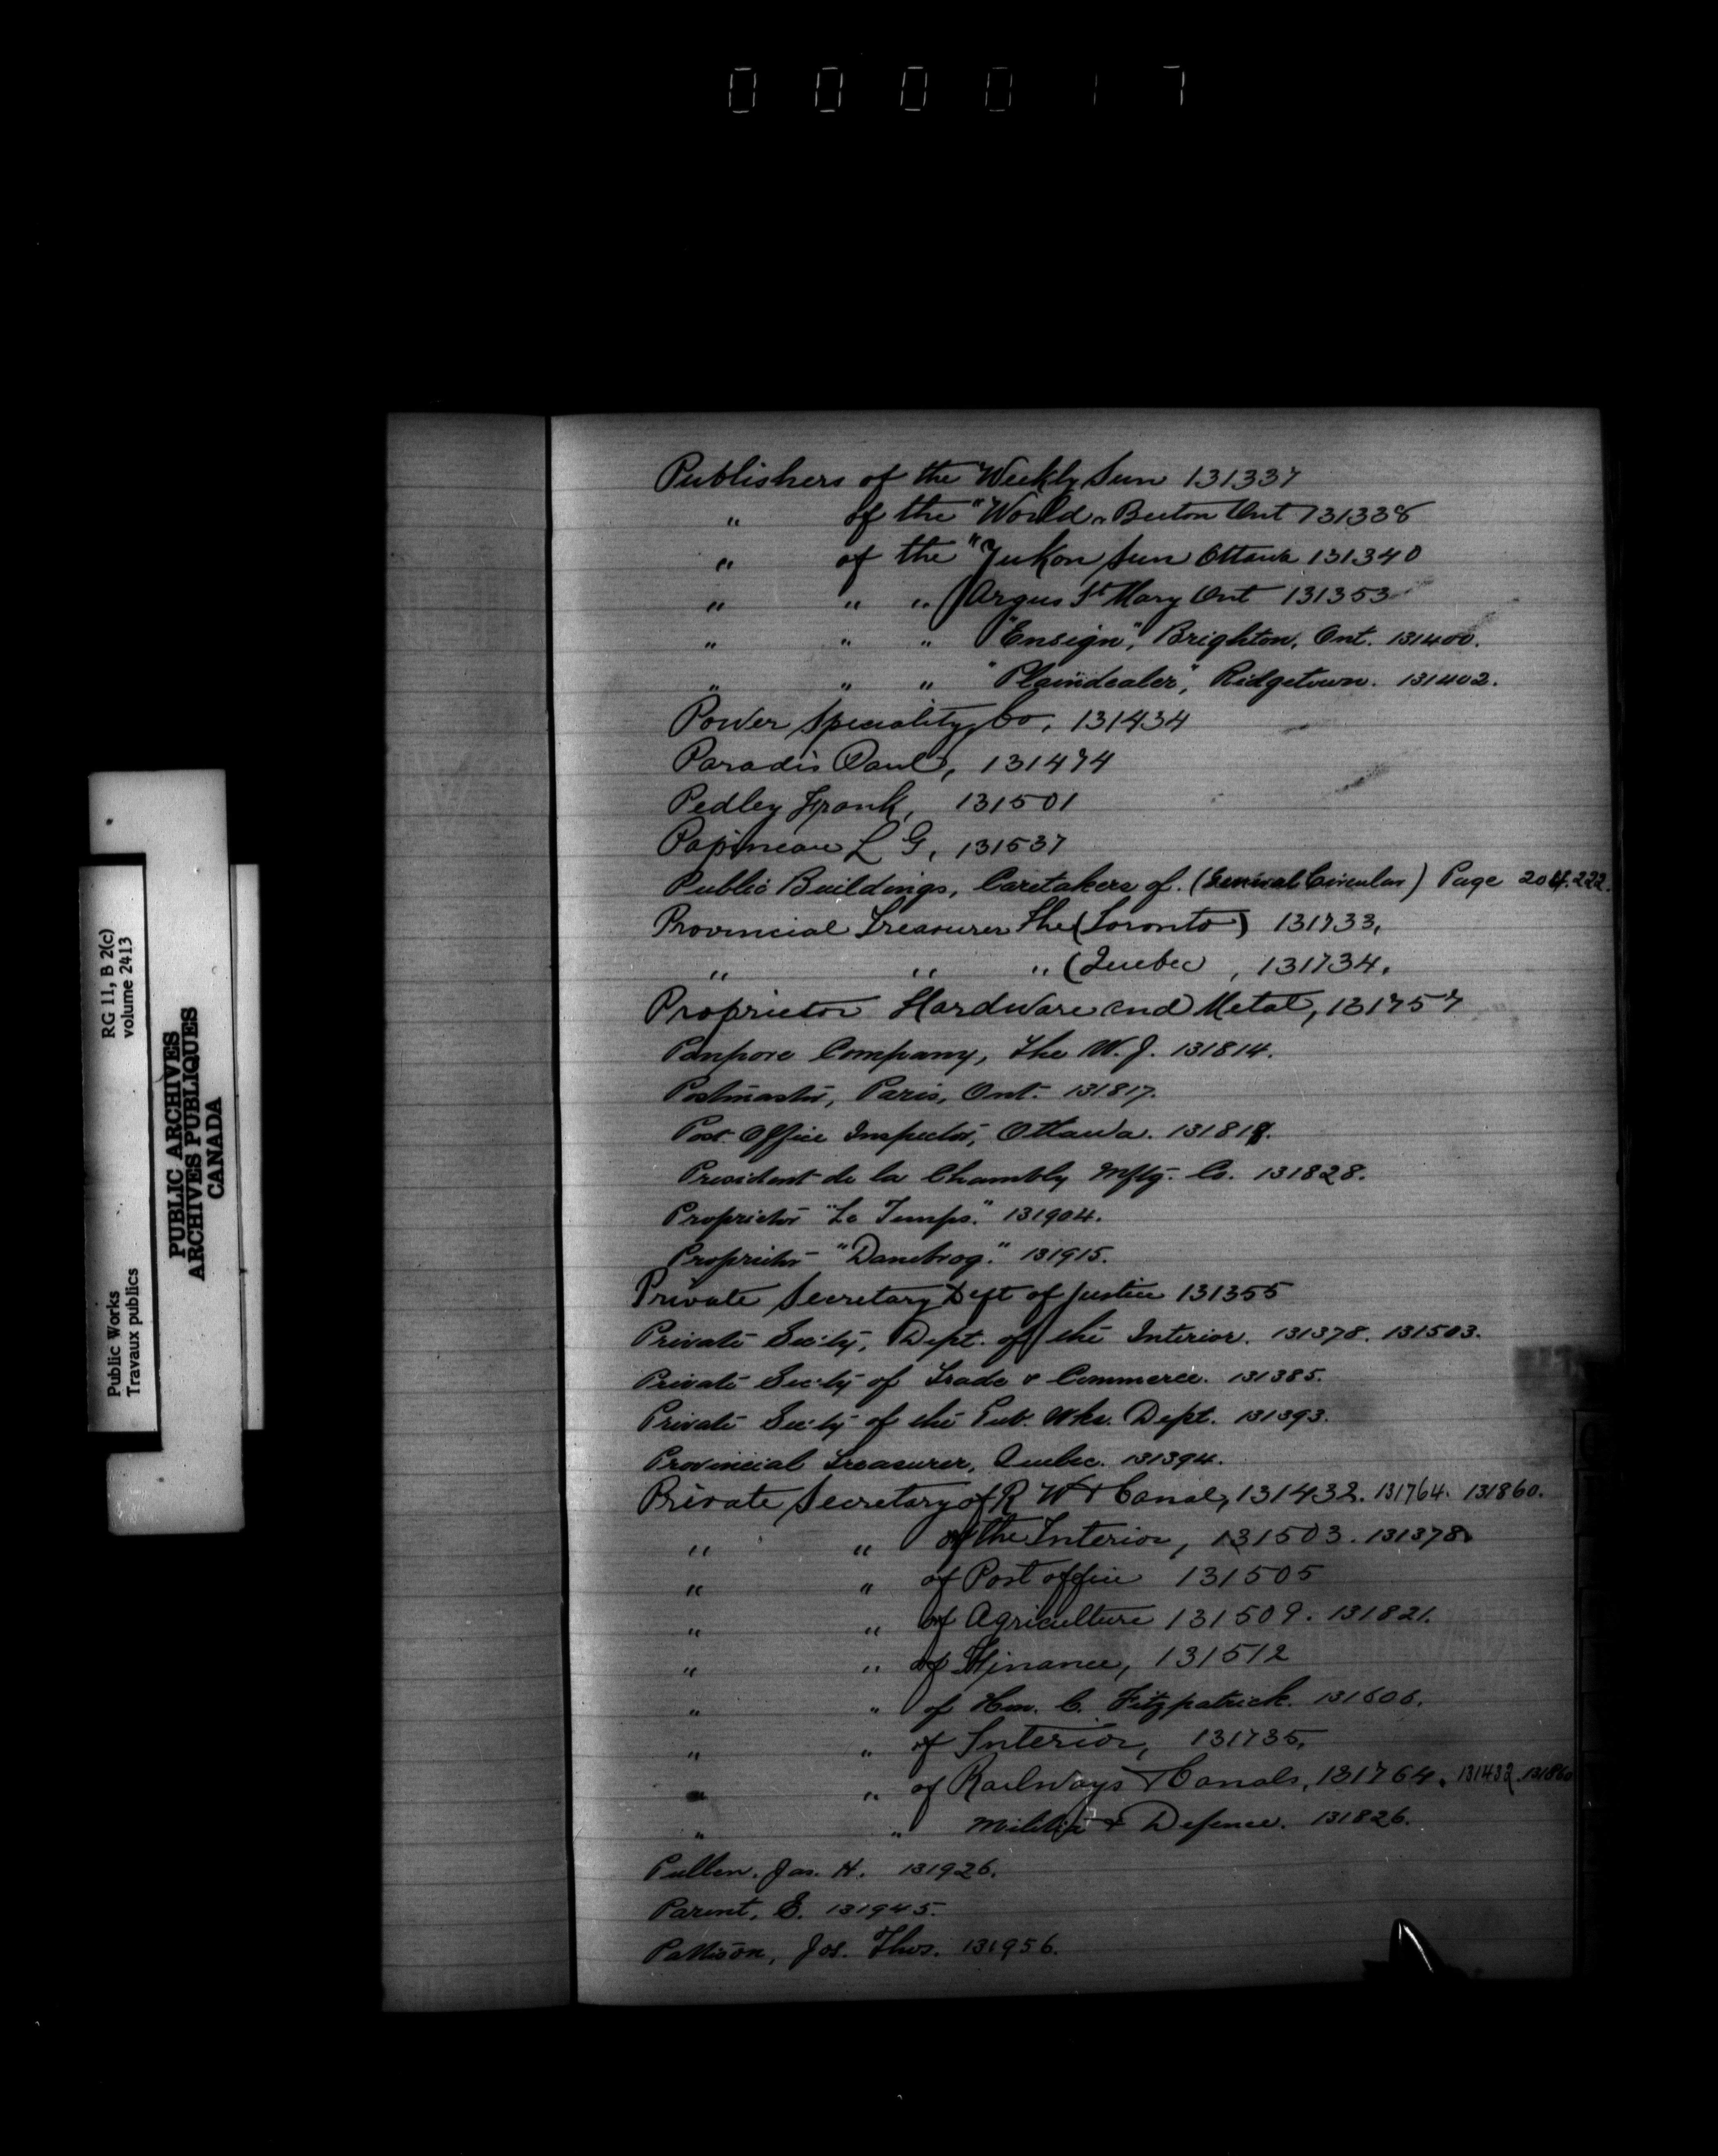 0 0 0 0 1 7
Publishers of the "Weekly Sun 131337
" of the "World" Beeton Ont 131338
" of the "Yukon Sun Ottawa 131340
" " " Argus St Mary Ont 131353
" " " "Ensign", Brighton, Ont. 131400.
" " " "Plaindealer", Ridgetown. 131402.
Power Speciality Co, 131434
Paradis Paul, 131474
Pedley Frank, 131501
Papineau L G, 131537
Public Buildings, Caretakers of. (General Circular) Page 204.222.
Provincial Treasurer The (Toronto) 131733,
" " " (Quebec , 131734,
Proprietor Hardware and Metal, 131757
Company, The W. J. 131814.
Postmaster, Paris, Ont. 131817.
Post Office Inspector, Ottawa. 131818.
President de la Chambly Mftg. Co. 131828.
Proprietor "Le Temps." 131904.
Proprietor "Danebrog." 131915.
Private Secretary Dept of Justice 131355
Private Sec'ty, Dept. of the Interior. 131378. 131503.
Private Sec'ty of Trade & Commerce. 131385.
Private Sec'ty of the Pub. Wks. Dept. 131393.
Provincial Treasurer, Quebec. 131394.
Private Secretary of R W & Canal, 131432. 131764. 131860.
" " of the Interior, 131503. 131378.
" " of Post office 131505
" " of Agriculture 131509. 131821.
" " of Finance, 131512
" " of Hon. C. Fitzpatrick. 131606.
" " of Interior, 131735,
" " of Railways & Canals, 131764. 131432. 131860
" " Militia & Defence. 131826.
Pullen, Jas. H. 131926.
Parent, E. 131945.
Pattison, Jos. Thos. 131956.
RG 11, B 2(c)
volume 2413
Public Works
Travaux publics
PUBLIC ARCHIVES
ARCHIVES PUBLIQUES
CANADA